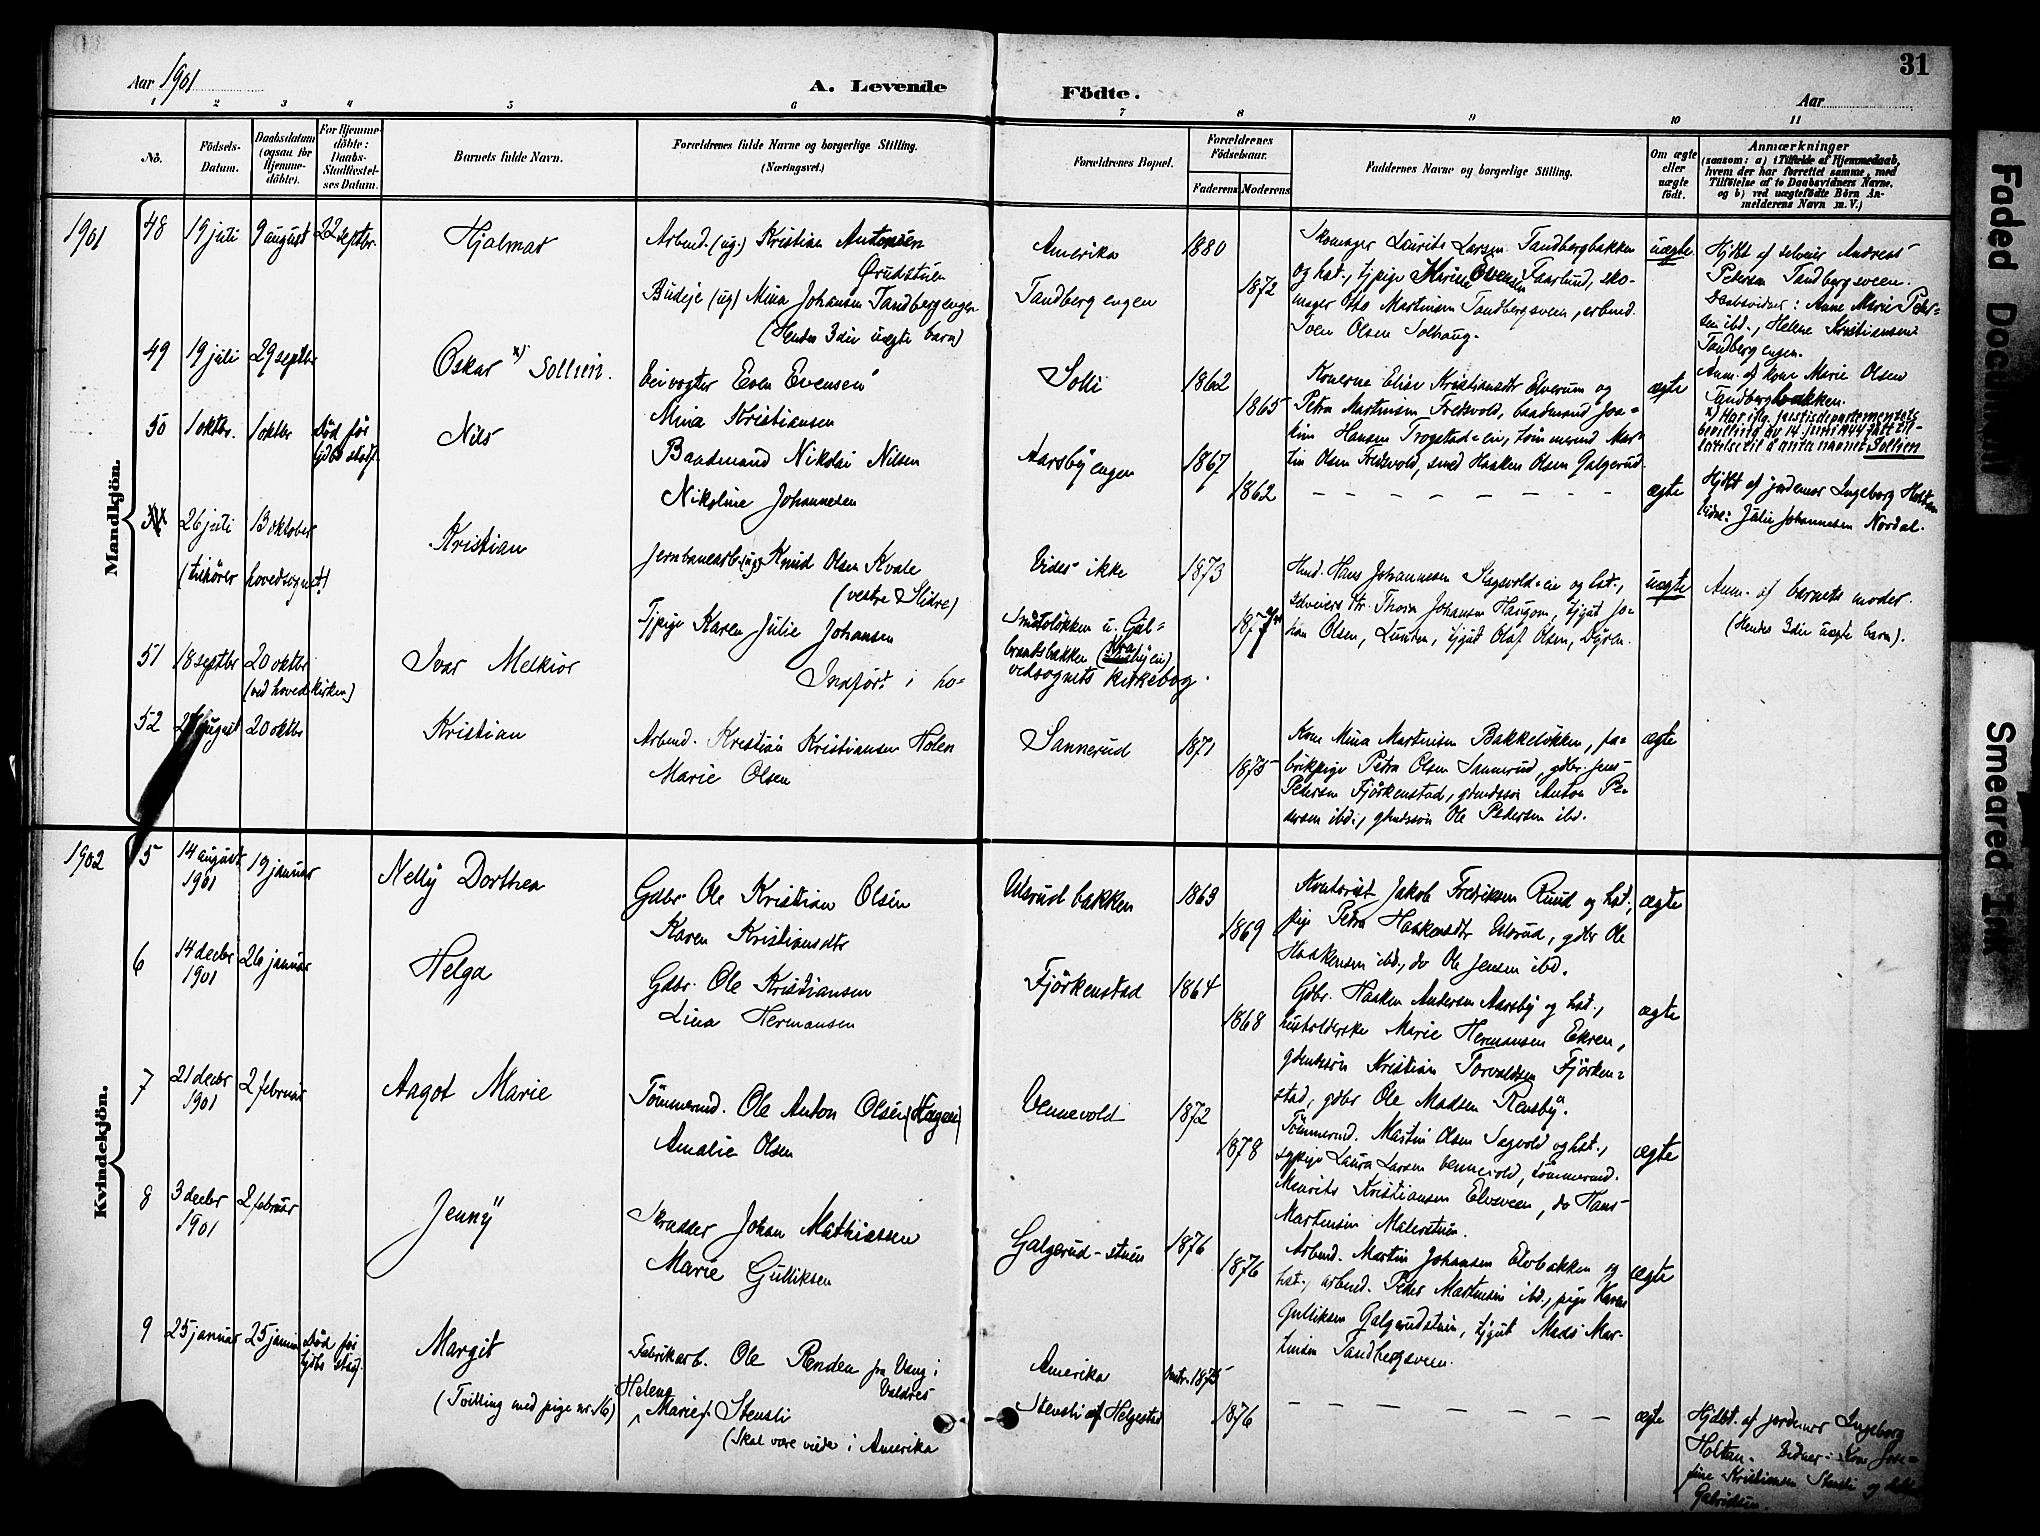 Aar 1901
A. Levende Födte.
Aar
31
1 2 3 4 5 6 7 8 9 10 11
No.
Födsels-Datum.
Daabsdatum (ogsaa for Hjemme-döbte).
For Hjemme-döbte: Daabs-Stadfæstel-ses Datum.
Barnets fulde Navn.
Forældrenes fulde Navne og borgerlige Stilling.
(Næringsvei.)
Forældrenes Bopæl.
Forældrenes Födselsaar.
Faderens Moderens
Faddernes Navne og borgerlige Stilling.
Om ægte eller uægte födt.
Anmærkninger
(saasom: a) i Tilfælde af Hjemmedaab,
hvem der har forrettet samme, med
Tilföielse af to Daabsvidners Navne.
og b) ved uægtefödte Börn An-
melderens Navn m. V.)
Mandkjön.
1901 48 19 juli 9 august 22 septbr.
Hjalmar
Arbmd. (ug.) Kristian Antonsen
Ørudstuen
Budeje (ug) Mina Johansen Tandbergengen
(Hendes 3die uægte barn)
Amerika 1880
Tandbergengen 1872
Skomager Laurits Larsen Tandbergbakken
og hst., tjpige Marie Evensen Faarlund, sko-
mager Otto Martinsen Tandbergsveen, arbmd.
Sven Olsen Solhaug.
uægte
Hjdbt af selveier Andreas
Pedersen Tandbergsveen.
Daabsvidner: Anne Marie Peder-
sen ibd., Helene Kristiansen
Tandbergengen.
Anm. af kone Marie Olsen
Tandbergbakken.
49 19 juli 29 septbr
Oskar x) Sollien.
Veivogter Even Evensen
Mina Kristiansen
Solli 1862
1865
Konerne Elise Kristiansdtr Elverum og
Petra Martinsen Fredsvold, baadmand Joa-
kim Hansen Trogstad-eie, tömmermd Mar-
tin Olsen Fredsvold, smed Haaken Olsen Galgerud.
ægte
x) Har iflg. justisdepartementets
bevilling av 14. juni 1944 fått til-
latelse til å anta navnet Sollien
50 1 oktbr. 1 oktbr Död för hjdbs stadf.
Nils
Baadmand Nikolai Nilsen
Nikoline Johannesen
Aarsbyengen 1867
1862
ægte
Hjdbt af jordemor Ingeborg Holtan
Vidne: Julie Johannesen Nordal.
26 juli 13 oktober
(tilhörer hovedsognet)
Kristian
Jernbanearb. (ug) Knud Olsen Kvale
(vestre Slidre)
Tjpige Karen Julie Johansen
Vides ikke 1873
Smedlökken u. Gul-
brandsbakken
Hmd. Hans Johannesen Slagsvold-eie og hst.,
selveiers dtr. Thora Johansen Haugom, tjgut Jo-
han Olsen, Lunden, tjgut Olaf Olsen, Dyren.
uægte
Anm. af barnets moder.
(Hendes 3die uægte barn).
51 18 septbr 20 oktbr
(ved hovedkirken)
Ivar Melkior
Indfört i ho-
vedsognets kirkebog.
52 august 20 oktbr
Kristian
Arbmd. Kristian Kristiansen Holen
Marie Olsen
Sannerud 1871
1875
Kone Mina Martinsen Bakkelökken, fa-
brikpige Petra Olsen Sannerud, gdbr. Jens
Petersen Fjörkenstad, gmdssön Anton Pe-
dersen ibd., gmdssön Ole Pedersen ibd.
ægte
Kvindekjön.
1902 5 14 august 1901 19 januar
Nelly Dorthea
Gdbr Ole Kristian Olsen
Karen Kristiansdtr
Ulsrudbakken 1863
1869
Kontorist Jakob Fredriksen Ruud og hst.,
pige Petra Haakensdtr Ulsrud, gdbr Ole
Haakensen ibd., do Ole Jensen ibd.
ægte
6 14 decbr 1901 26 januar
Helga
Gdbr. Ole Kristiansen
Lina Hermansen
Fjörkenstad 1864
1868
Gdbr. Haaken Andersen Aarsby og hst.,
husholderske Marie Hermansen Ekren,
gmdssön Kristian Torvaldsen Fjörken-
stad, gdbr Ole Madsen Rensby.
ægte
7 21 decbr 1901 2 februar
Aagot Marie
Tömmermd. Ole Anton Olsen (Hagen)
Amalie Olsen
Vennevold 1872
1878
Tömmermd. Martin Olsen Sagvold og hst.,
sypige Laura Larsen Vennevold, tömmermd.
Maurits Kristiansen Elvesveen, do Hans
Martinsen Malerstuen.
ægte
8 3 decbr 1901 2 februar
Jenny
Skrædder Johan Mathiassen
Marie Gulliksen
Galgerud-stuen 1876
1876
Arbmd. Martin Johansen Elvbakken og
hst., arbmd. Peder Martinsen ibd., pige Karen
Gulliksen Galgerudstuen, tjgut Mads Mar-
tinsen Tandbergsveen.
ægte
9 25 januar 25 januar Död för hjdbs stadf.
Margit
(Tvilling med pige nr. 16)
Fabrikarb. Ole Renden fra Vang i
Valdres
Helene
Marie Stensli
(Skal være viede i Amerika
Amerika 1875
Stensli af Helgestad 1876
ægte
Hjdbt. af jordemor Ingeborg
Holtan. Vidner: Kone Jose-
fine Kristiansen Stensli og
Gabrielsen.
Faded Document
Smeared Ink